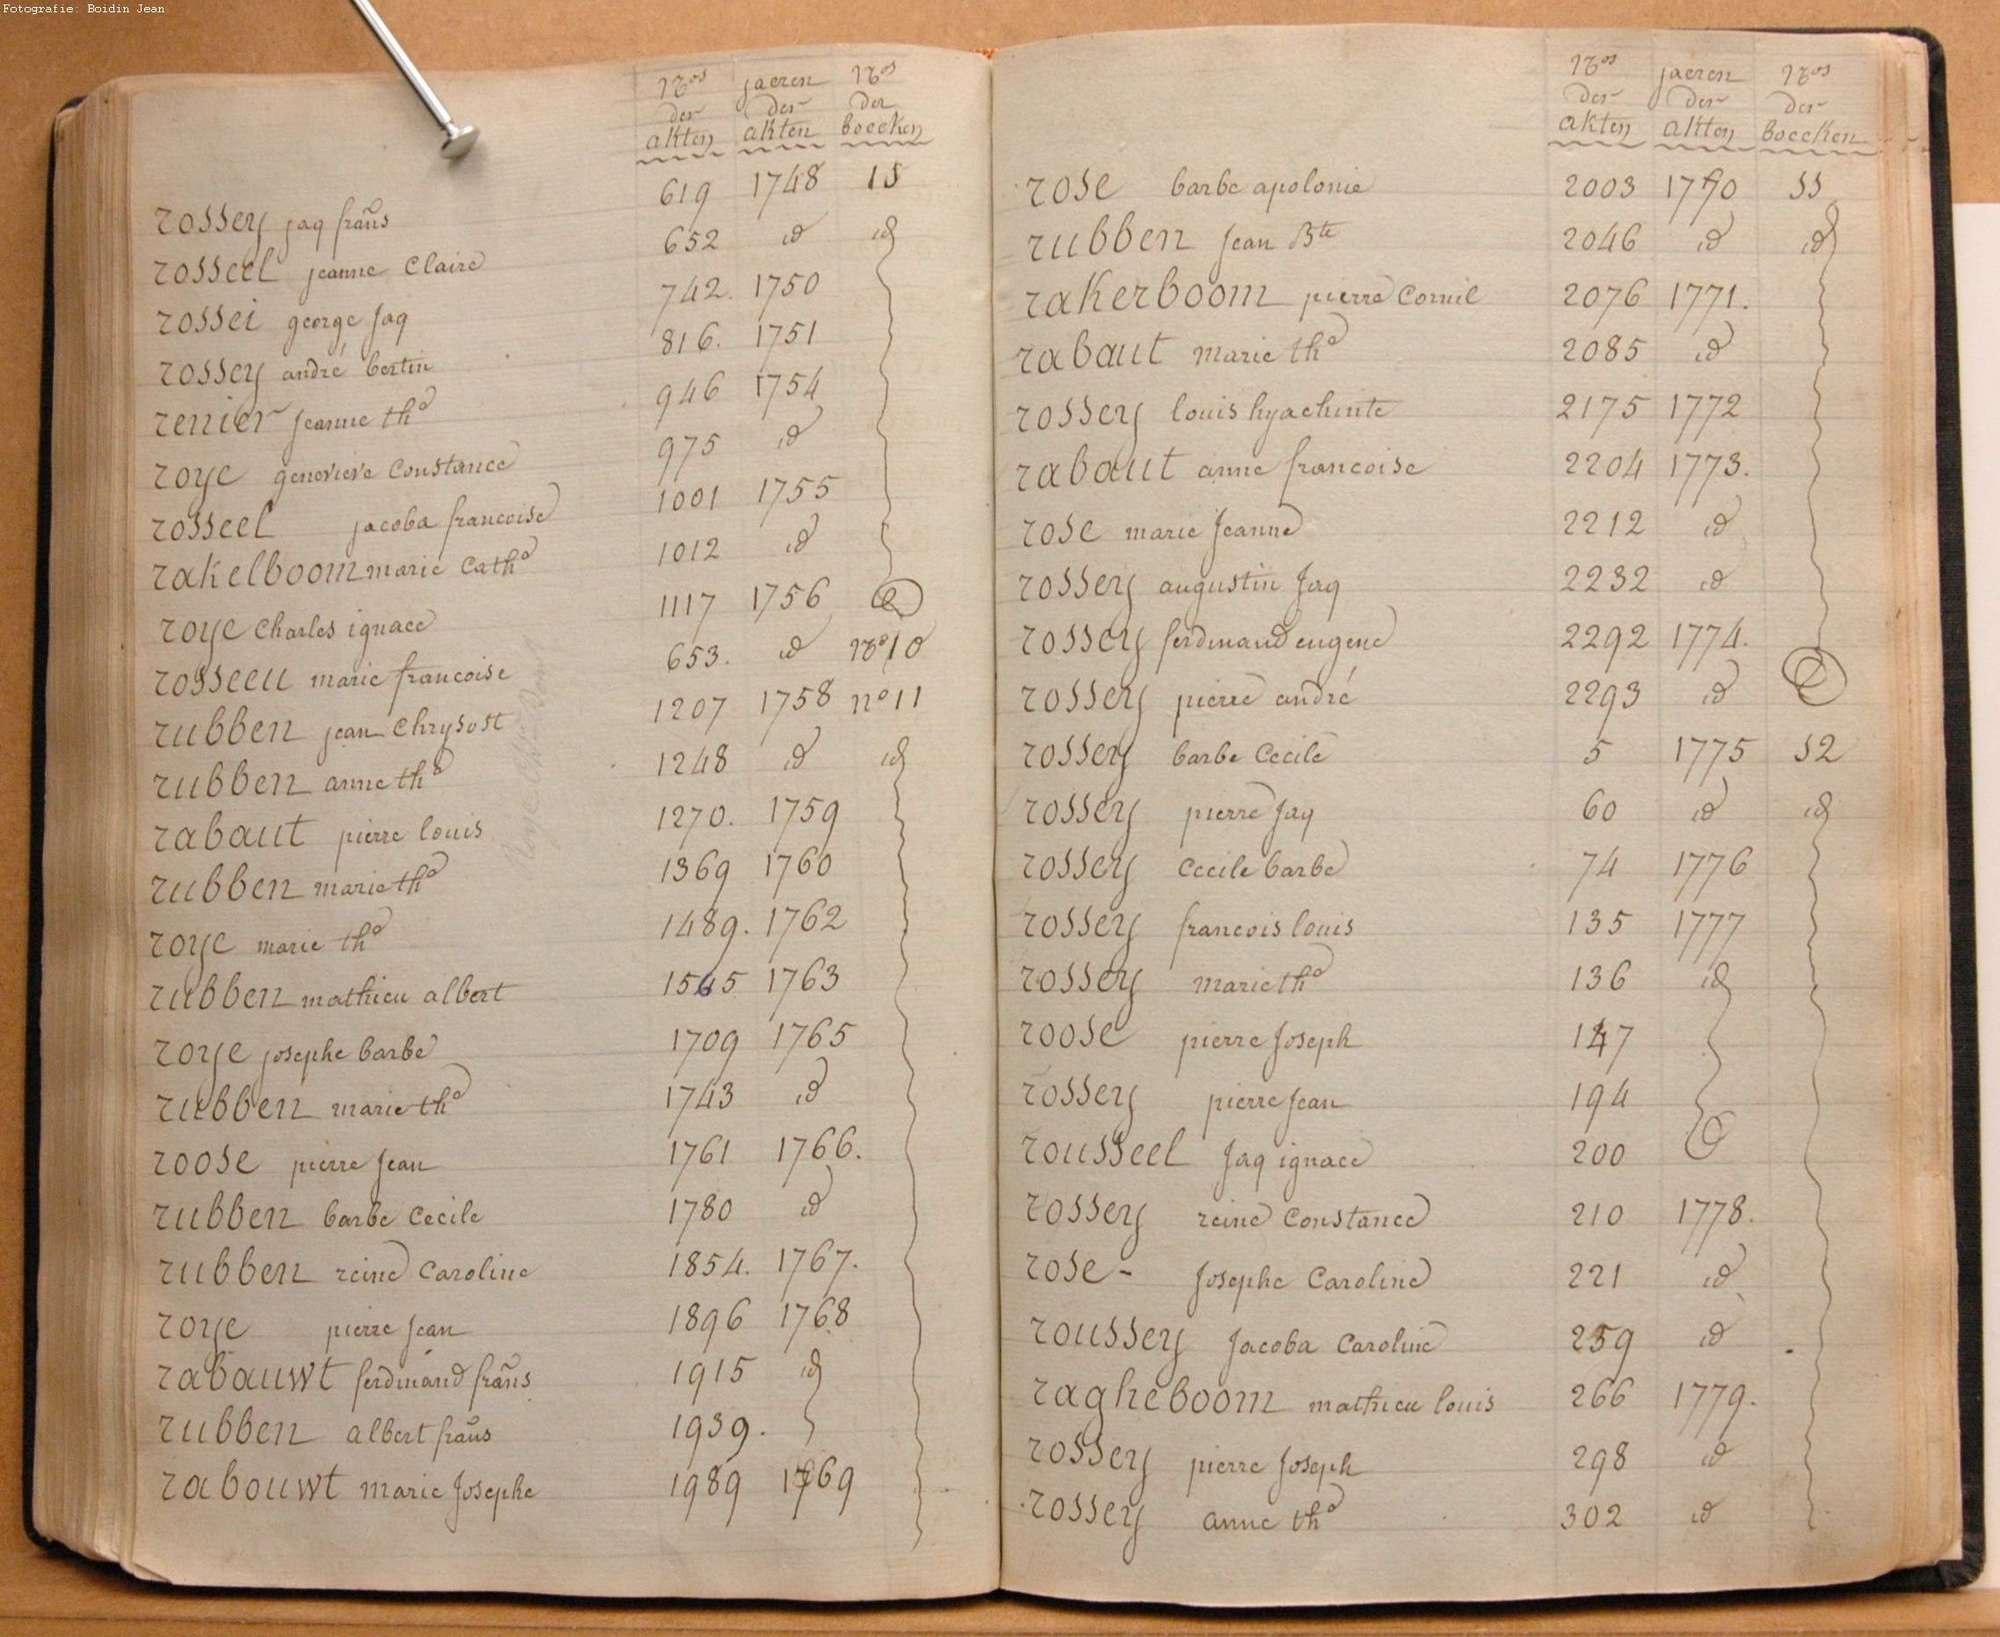 Fotografie: Boidin Jean
Nos jaeren Nos
der der der
akten akten boecken
rossey jaq frans 619 1748 15
rosseel jeanne Claire 652 id id
rossei george jaq 742. 1750
rossey andré bertin 816. 1751
renier jeanne the 946 1754
roye genevieve Constance 975 id
rosseel jacoba francoise 1001 1755
rakelboom marie Cathe 1012 id
roye Charles ignace 1117 1756
rosseeu marie francoise 653. id No 10
rubben jean Chrysost 1207 1758 no 11
rubben anne the 1248 id id
rabaut pierre louis 1270. 1759
rubben marie the 1369 1760
roye marie the 1489. 1762
rubben mathieu albert 1545 1763
roye josephe barbe 1709 1765
rubben marie the 1743 id
roose pierre jean 1761 1766.
rubben barbe Cecile 1780 id
rubben reine Caroline 1854. 1767.
roye pierre jean 1896 1768
rabauwt ferdinand frans 1915 id
rubben albert frans 1939.
rabouwt marie Josephe 1989 1769
Nos jaeren Nos
der der der
akten akten boecken
rose barbe apolonie 2003 1770 11
rubben Jean Bte 2046 id id
rakerboom pierre Cornil 2076 1771.
rabaut marie the 2085 id
rossey louis hyachinte 2175 1772
rabaut anne francoise 2204 1773.
rose marie Jeanne 2212 id
rossey augustin Jaq 2232 id
rossey ferdinand eugene 2292 1774.
rossey pierre andré 2293 id
rossey barbe Cecile 5 1775 12
rossey pierre Jaq 60 id id
rossey Cecile barbe 74 1776
rossey francois louis 135 1777
rossey marie the 136 id
roose pierre Joseph 147
rossey pierre Jean 194
rousseel Jaq ignace 200
rossey reine Constance 210 1778.
rose - Josephe Caroline 221 id
roussey Jacoba Caroline 259 id
ragheboom mathieu louis 266 1779.
rossey pierre Joseph 298 id
rossey anne the 302 id